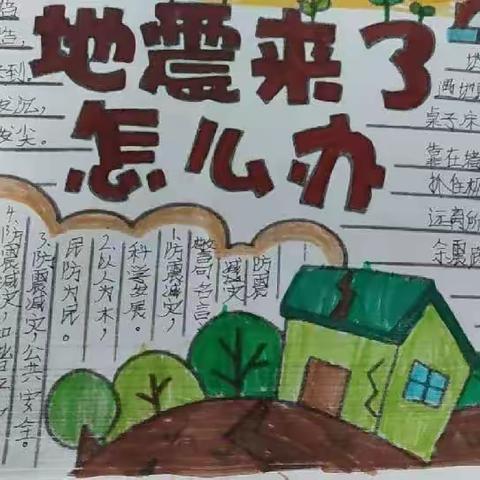 地震来了
怎么办
造,
到
发尖。
遇地
桌子床
靠在墙
抓住
远离
余震
防震
减灾
警句名言
1.防震减灾,
科学发展。
2.以人为本,
民防为民。
3.防震减灾,公共安全。
4.防震减灾,和谐